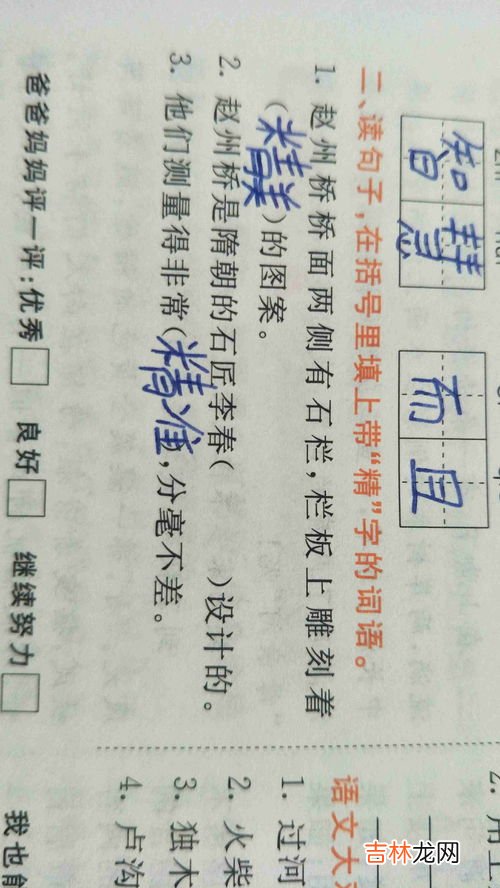 智慧 而且
二、读句子,在括号里填上带“精”字的词语。
1. 赵州桥桥面两侧有石栏,栏板上雕刻着
(精美)的图案。
2. 赵州桥是隋朝的石匠李春( )设计的。
3. 他们测量得非常(精准),分毫不差。
爸爸妈妈评一评:优秀□ 良好□ 继续努力□
2. 用
语文大
1. 过河
2. 火柴
3. 独木
4. 卢沟
我也能
吉林龙网